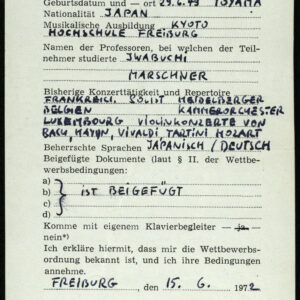 Geburtsdatum und — ort 29.6.49 TOYAMA
Nationalität JAPAN
Musikalische Ausbildung KYOTO
HOCHSCHULE FREIBURG
Namen der Professoren, bei welchen der Teil-
nehmer studierte IWABUCHI
MARSCHNER
Bisherige Konzerttätigkeit und Repertoire
FRANKREICH, SOLIST HEIDELBERGER
BELGIEN KAMMERORCHESTER
LUXEMBOURG VIOLINKONZERTE VON
BACH, HAYDN, VIVALDI TARTINI MOZART
Beherrschte Sprachen JAPANISCH / DEUTSCH
Beigefügte Dokumente (laut § II. der Wettbe-
werbsbedingungen:
a)
b) IST BEIGEFÜGT
c)
d)
Komme mit eigenem Klavierbegleiter — ja —
nein*)
Ich erkläre hiermit, dass mir die Wettbewerbs-
ordnung bekannt ist, und ich ihre Bedingungen
annehme.
FREIBURG, den 15. 6. 1972